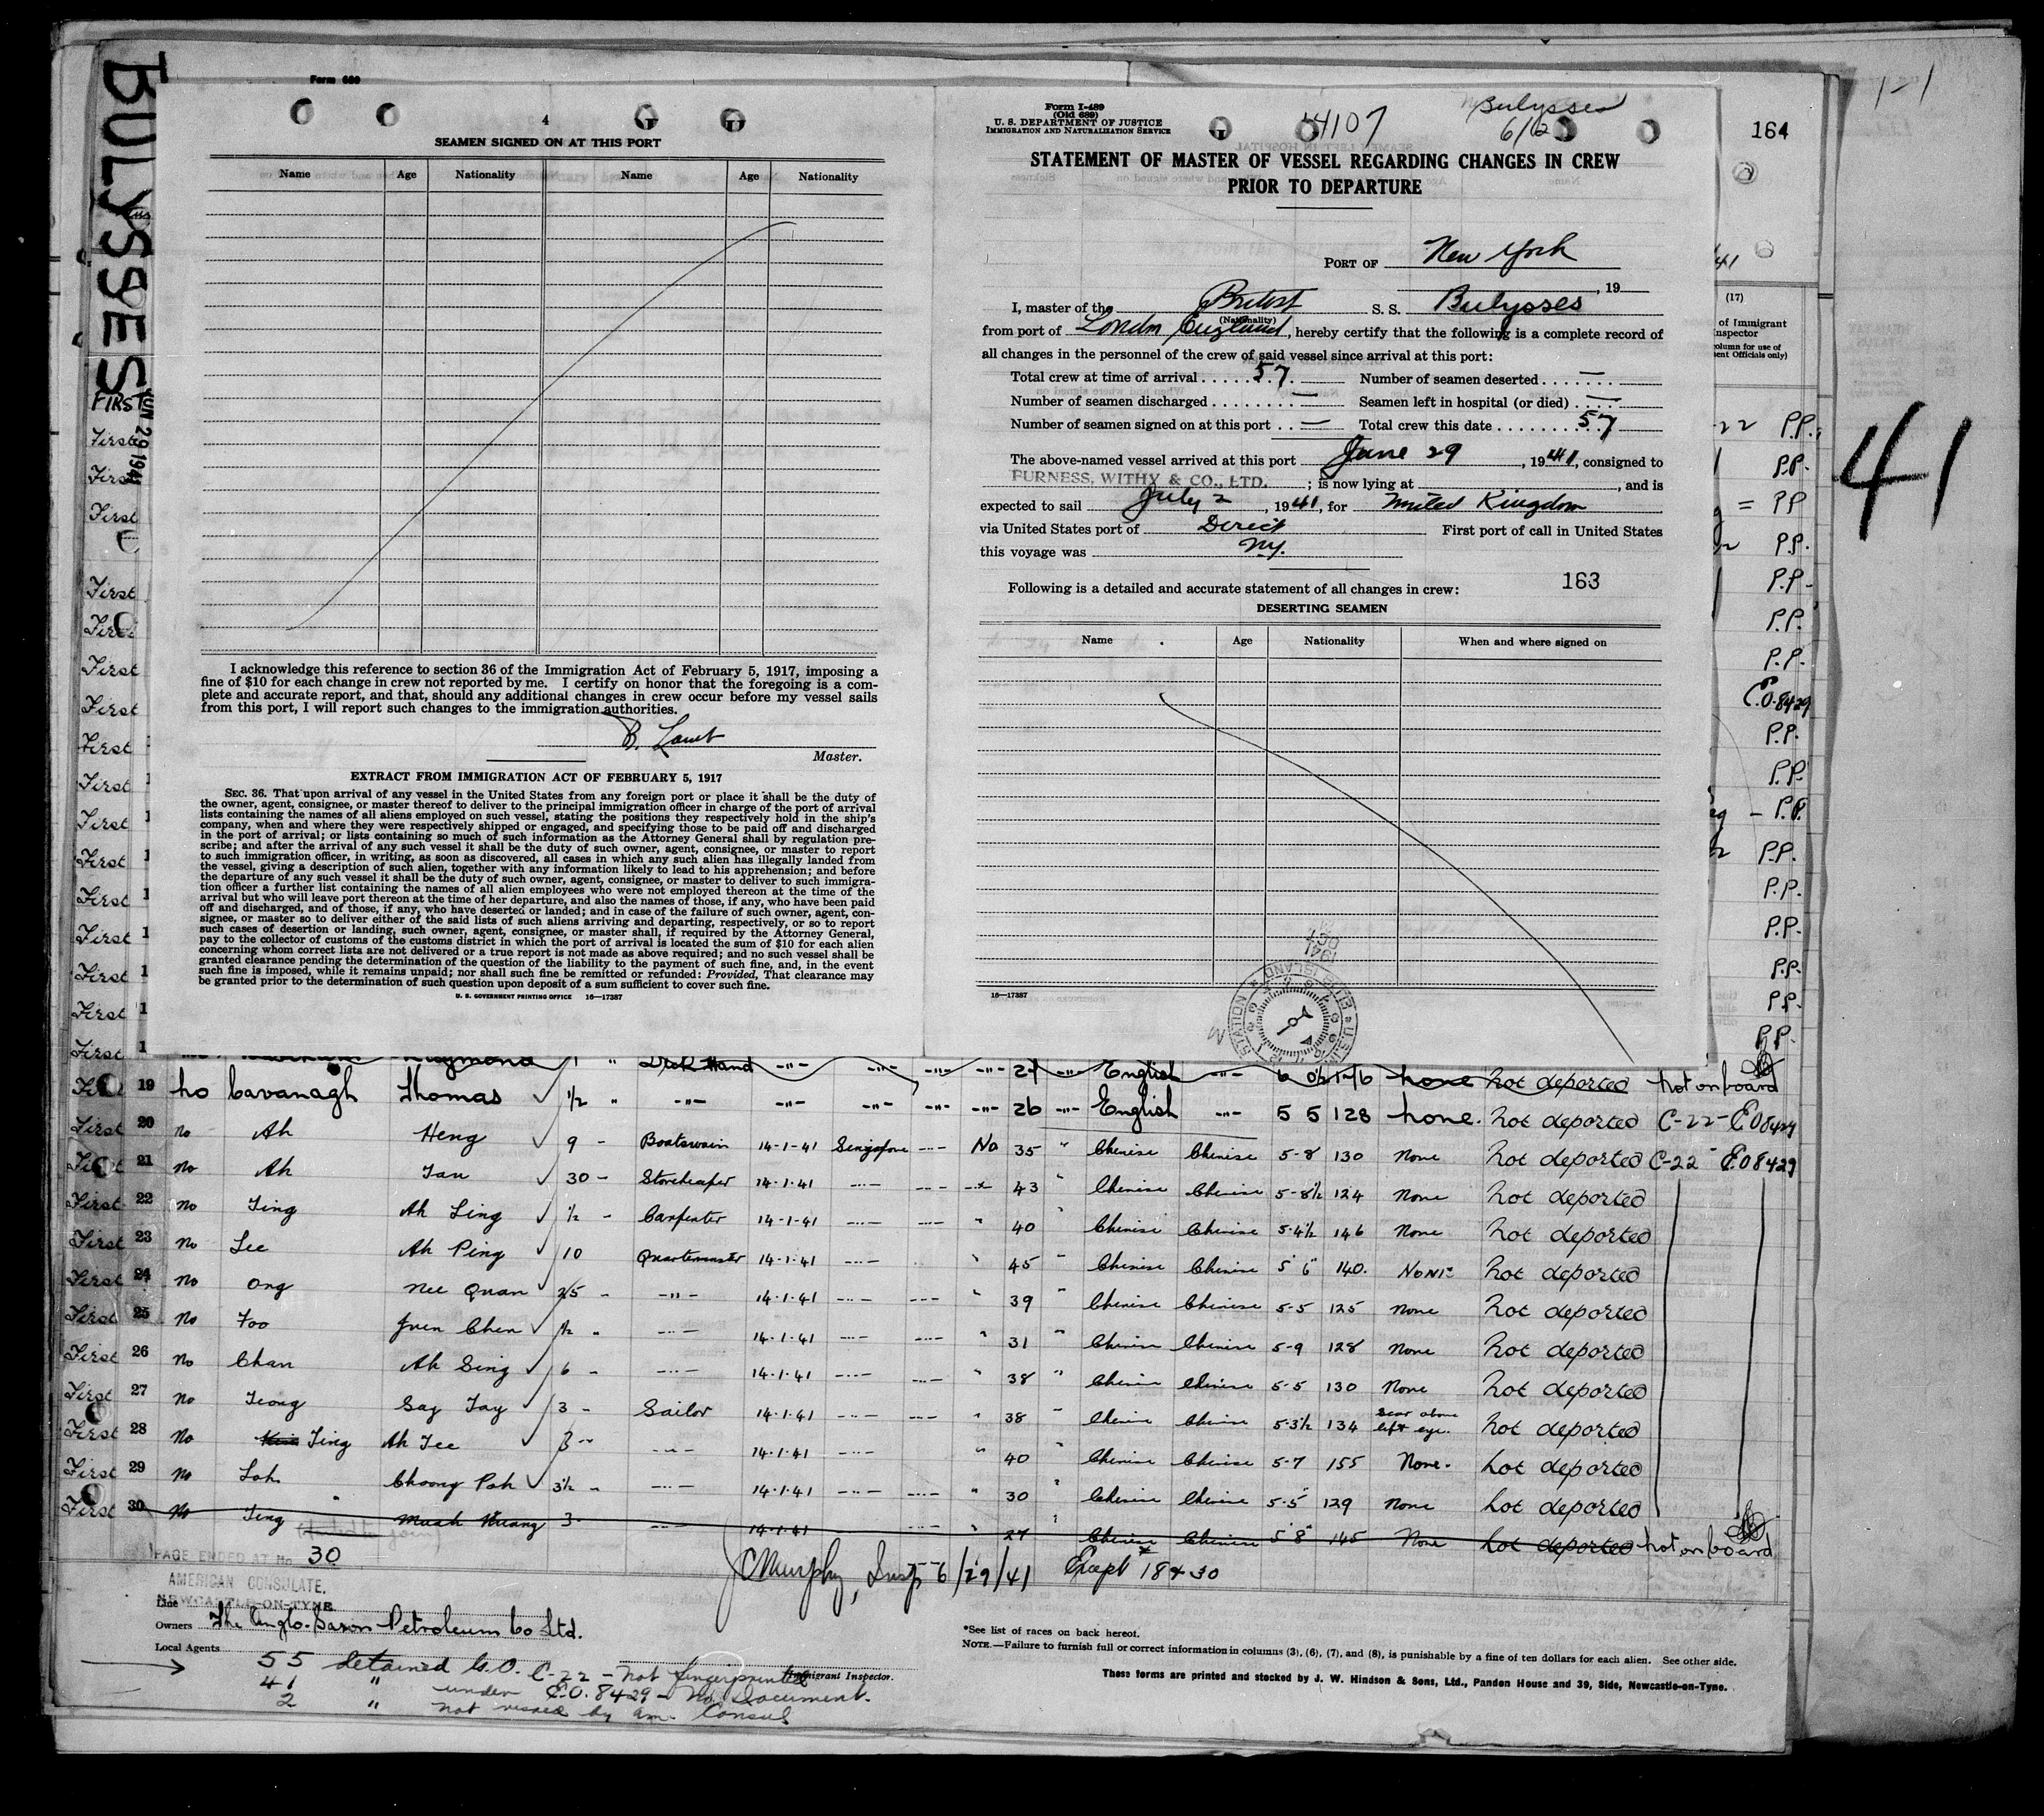 BULYSSES
JUN 29 1941
Form 689
4
SEAMEN SIGNED ON AT THIS PORT
Name Age Nationality Name Age Nationality
I acknowledge this reference to section 36 of the Immigration Act of February 5, 1917, imposing a
fine of $10 for each change in crew not reported by me. I certify on honor that the foregoing is a com-
plete and accurate report, and that, should any additional changes in crew occur before my vessel sails
from this port, I will report such changes to the immigration authorities.
B. Lamb
Master.
EXTRACT FROM IMMIGRATION ACT OF FEBRUARY 5, 1917
SEC. 36. That upon arrival of any vessel in the United States from any foreign port or place it shall be the duty of
the owner, agent, consignee, or master thereof to deliver to the principal immigration officer in charge of the port of arrival
lists containing the names of all aliens employed on such vessel, stating the positions they respectively hold in the ship's
company, when and where they were respectively shipped or engaged, and specifying those to be paid off and discharged
in the port of arrival; or lists containing so much of such information as the Attorney General shall by regulation pre-
scribe; and after the arrival of any such vessel it shall be the duty of such owner, agent, consignee, or master to report
to such immigration officer, in writing, as soon as discovered, all cases in which any such alien has illegally landed from
the vessel, giving a description of such alien, together with any information likely to lead to his apprehension; and before
the departure of any such vessel it shall be the duty of such owner, agent, consignee, or master to deliver to such immigra-
tion officer a further list containing the names of all alien employees who were not employed thereon at the time of the
arrival but who will leave port thereon at the time of her departure, and also the names of those, if any, who have been paid
off and discharged, and of those, if any, who have deserted or landed; and in case of the failure of such owner, agent, con-
signee, or master so to deliver either of the said lists of such aliens arriving and departing, respectively, or so to report
such cases of desertion or landing, such owner, agent, consignee, or master shall, if required by the Attorney General,
pay to the collector of customs of the customs district in which the port of arrival is located the sum of $10 for each alien
concerning whom correct lists are not delivered or a true report is not made as above required; and no such vessel shall be
granted clearance pending the determination of the question of the liability to the payment of such fine, and, in the event
such fine is imposed, while it remains unpaid; nor shall such fine be remitted or refunded: Provided, That clearance may
be granted prior to the determination of such question upon deposit of a sum sufficient to cover such fine.
U. S. GOVERNMENT PRINTING OFFICE 16—17387
Form I-489
(Old 689)
U. S. DEPARTMENT OF JUSTICE
IMMIGRATION AND NATURALIZATION SERVICE
14107
Bulysses
6/2
STATEMENT OF MASTER OF VESSEL REGARDING CHANGES IN CREW
PRIOR TO DEPARTURE
PORT OF New York
, 19
I, master of the British S. S. Bulysses
(Nationality)
from port of London England, hereby certify that the following is a complete record of
all changes in the personnel of the crew of said vessel since arrival at this port:
Total crew at time of arrival 57 Number of seamen deserted —
Number of seamen discharged — Seamen left in hospital (or died) —
Number of seamen signed on at this port — Total crew this date 57
The above-named vessel arrived at this port June 29, 1941, consigned to
FURNESS, WITHY & CO., LTD. ; is now lying at — , and is
expected to sail July 2, 1941, for United Kingdom
via United States port of Direct First port of call in United States
this voyage was N.Y.
Following is a detailed and accurate statement of all changes in crew: 163
DESERTING SEAMEN
Name Age Nationality When and where signed on
16—17387
164
41
(17)
of Immigrant
Inspector
41
P.P.
P.P.
= P.P
P.P.
P.P.
P.P.
P.P.
E.O. 8429
P.P.
P.P.
P.P.
P.P.
P.P.
P.P.
P.P.
P.P.
P.P.
Raymond 1 " Deck Hand 27 English 6 0½ none not deported not on board
First 19 no Cavanagh Thomas ½ " 26 English 5 5 128 none. not deported C-22-EO8429
First 20 no Ah Heng 9 - Boatswain 14-1-41 Singapore No 35 " Chinese Chinese 5-8 130 None not deported C-22- EO8429
First 21 no Ah Tan 30 - Storekeeper 14.1.41 43 " Chinese Chinese 5-8½ 124 None not deported
First 22 no Ting Ah Ling ½ - Carpenter 14-1-41 40 Chinese Chinese 5-4½ 146 None not deported
First 23 no Lee Ah Ping 10 Quartermaster 14-1-41 45 Chinese Chinese 5 6 140. NONE not deported
First 24 no Ong Nee Quan 14.1.41 39 Chinese Chinese 5-5 125 None not deported
First 25 no Foo Juen Chen 14.1.41 31 Chinese Chinese 5-9 128 None not deported
First 26 no Chan Ah Sing 6 - 14.1.41 38 Chinese Chinese 5-5 130 None not deported
First 27 no Teong Say Tay 3 - Sailor 14.1.41 38 Chinese Chinese 5-3½ 134 Scar above left eye. not deported
First 28 no Ting Ah Tee 3 14.1.41 40 Chinese Chinese 5-7 155 None. not deported
First 29 no Loh Choong Pah 3½ - 14.1.41 30 Chinese Chinese 5-5 129 None not deported
First 30 no Ting Muah Kuang 3 14.1.41 27 Chinese Chinese 5 8 145 None not deported not on board
PAGE ENDED AT No 30
JC Murphy, Insp 6/29/41 Except 18 & 30
AMERICAN CONSULATE,
NEWCASTLE-ON-TYNE
Line
Owners The Anglo-Saxon Petroleum Co Ltd.
Local Agents
Immigrant Inspector.
55 detained G.O. C-22 - not fingerprinted
41 " under E.O. 8429 - No Document.
2 " not visaed by Am. Consul
*See list of races on back hereof.
NOTE.—Failure to furnish full or correct information in columns (3), (6), (7), and (8), is punishable by a fine of ten dollars for each alien. See other side.
These forms are printed and stocked by J. W. Hindson & Sons, Ltd., Pandon House and 39, Side, Newcastle-on-Tyne.